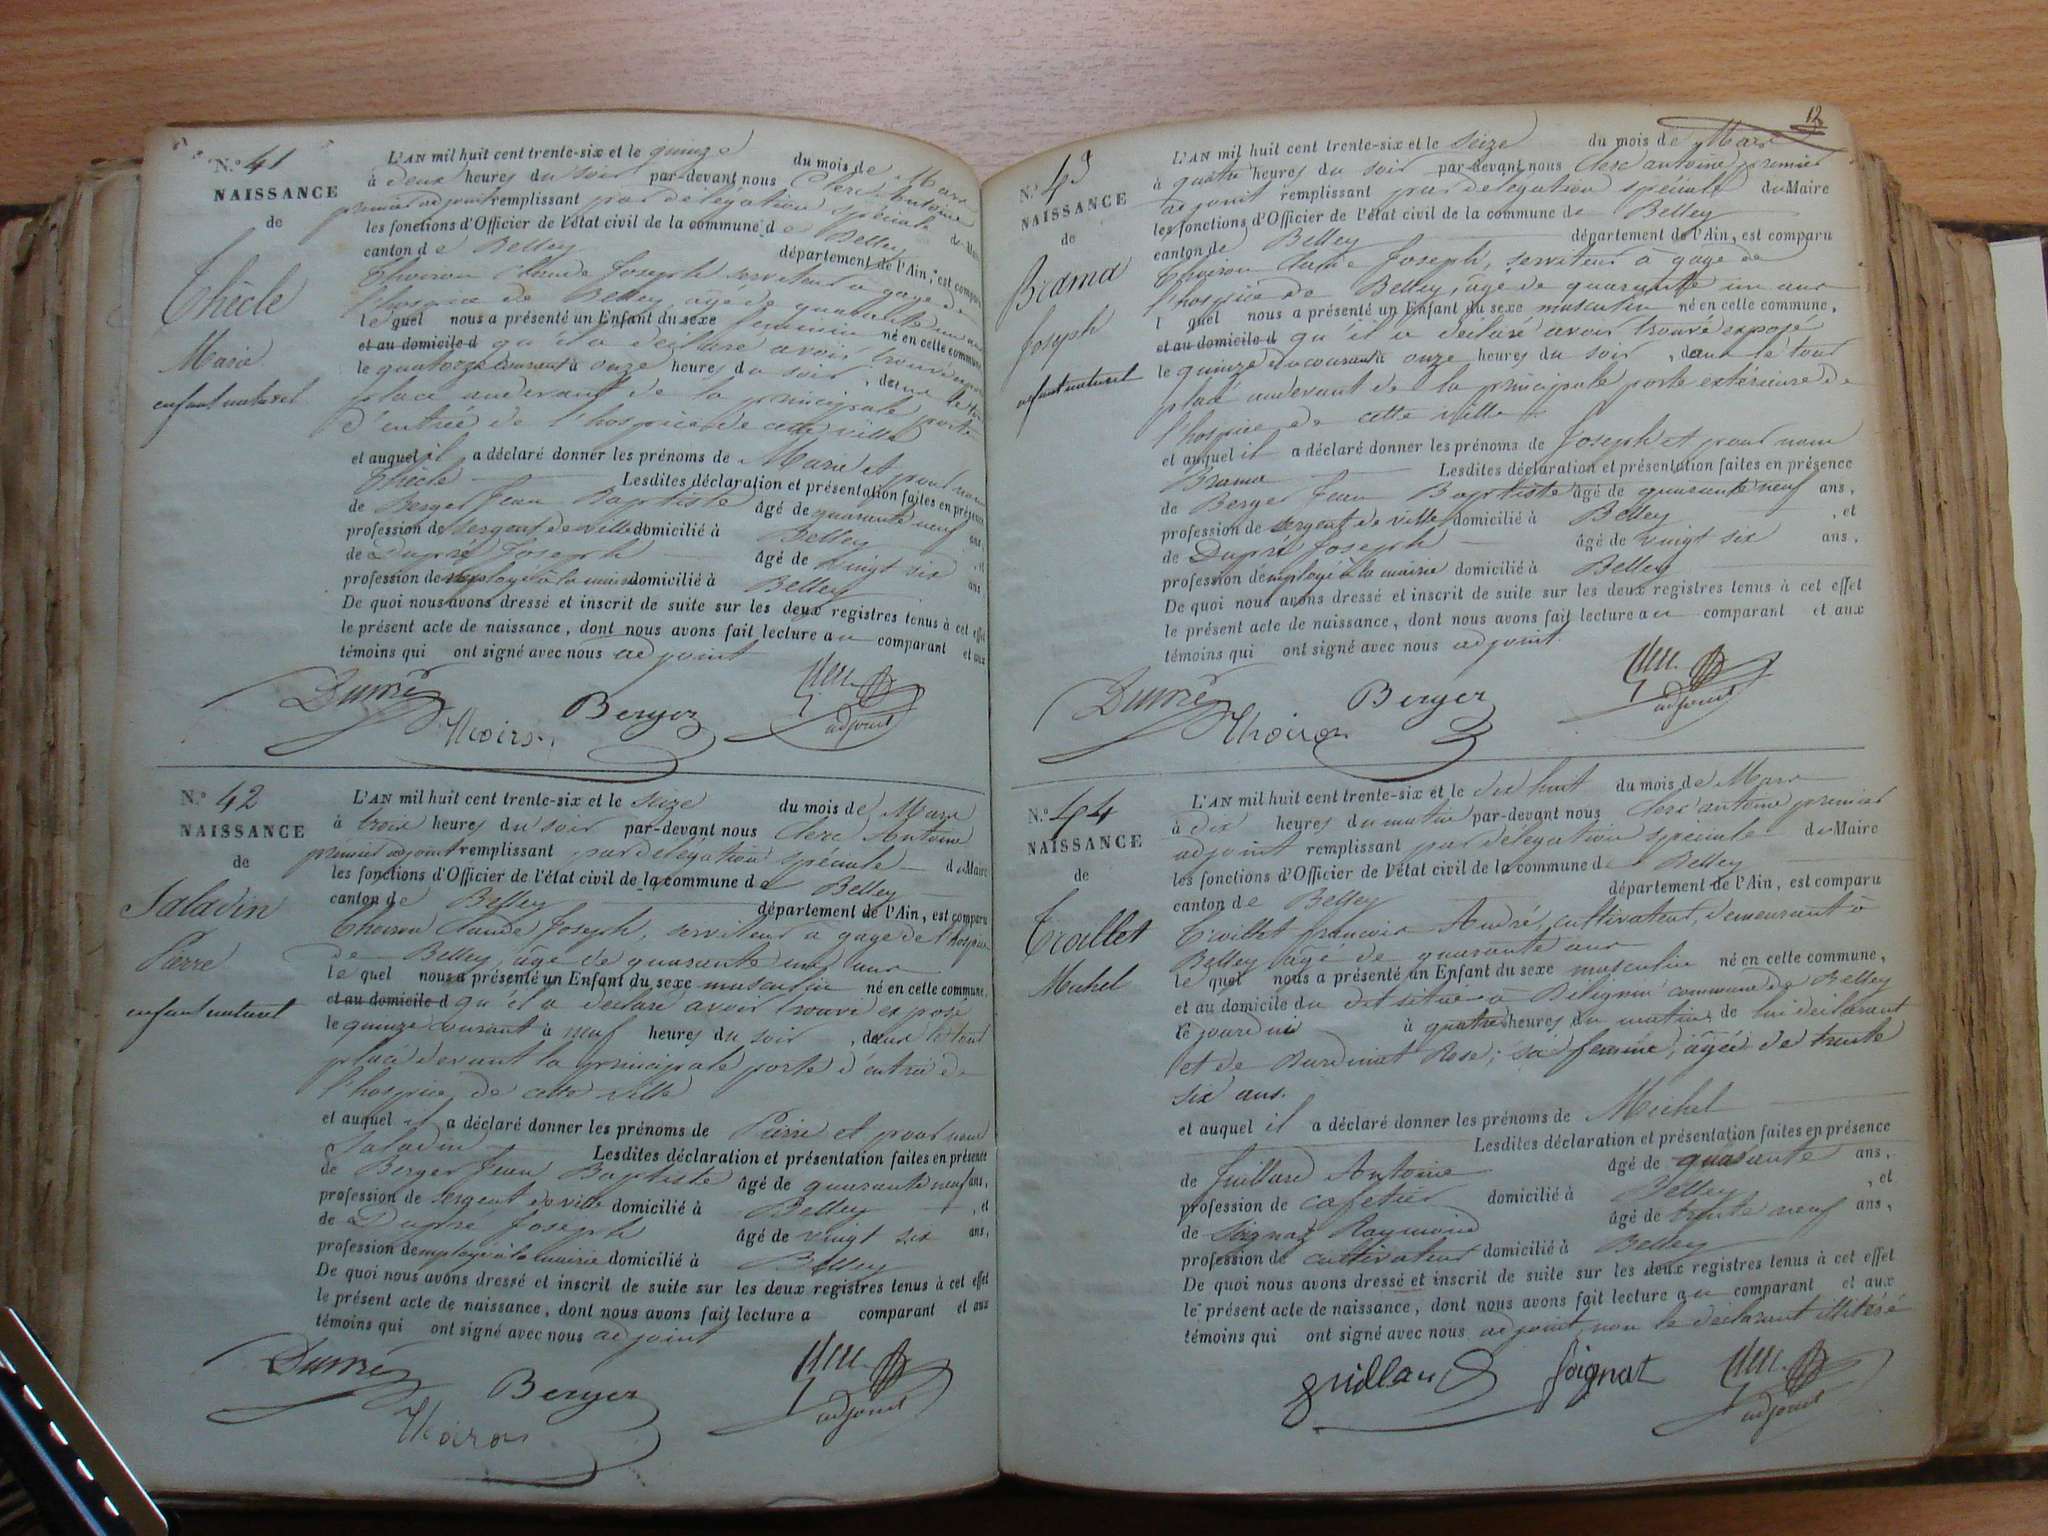 N.º 41
NAISSANCE
de
Thècle
Marie
enfant naturel
L'AN mil huit cent trente-six et le quinze du mois de Mars
à deux heures du soir par-devant nous Clerc Antoine
premier adjoint remplissant par délégation spéciale du Maire
les fonctions d'Officier de l'état civil de la commune de Belley
canton de Belley département de l'Ain, est comparu
Thoiron Claude Joseph serviteur à gage de
l'hospice de Belley, âgé de quarante un ans
lequel nous a présenté un Enfant du sexe féminin né en cette commune
et au domicile d qu'il a déclaré avoir trouvé exposé
le quatorze courant à onze heures du soir, dans le tour
placé audevant de la principale porte
d'entrée de l'hospice de cette ville
et auquel il a déclaré donner les prénoms de Marie et pour nom
Thècle Lesdites déclaration et présentation faites en présence
de Berger Jean Baptiste âgé de quarante neuf ans,
profession de sergent de ville domicilié à Belley, et
de Dupré Joseph âgé de vingt six ans
profession de employé à la mairie domicilié à Belley
De quoi nous avons dressé et inscrit de suite sur les deux registres tenus à cet effet
le présent acte de naissance, dont nous avons fait lecture au comparant et aux
témoins qui ont signé avec nous adjoint
Dupré Thoiron Berger Clerc
adjoint
N.º 42
NAISSANCE
de
Saladin
Pierre
enfant naturel
L'AN mil huit cent trente-six et le seize du mois de Mars
à trois heures du soir par-devant nous Clerc Antoine
premier adjoint remplissant par délégation spéciale du Maire
les fonctions d'Officier de l'état civil de la commune de Belley
canton de Belley département de l'Ain, est comparu
Thoiron Claude Joseph, serviteur à gage de l'hospice
de Belley, âgé de quarante un ans
lequel nous a présenté un Enfant du sexe masculin né en cette commune,
et au domicile d qu'il a déclaré avoir trouvé exposé
le quinze courant à neuf heures du soir, dans le tour
placé devant la principale porte d'entrée de
l'hospice de cette ville
et auquel il a déclaré donner les prénoms de Pierre et pour nom
Saladin Lesdites déclaration et présentation faites en présence
de Berger Jean Baptiste âgé de quarante neuf ans,
profession de sergent de ville domicilié à Belley, et
de Dupré Joseph âgé de vingt six ans,
profession de employé à la mairie domicilié à Belley
De quoi nous avons dressé et inscrit de suite sur les deux registres tenus à cet effet
le présent acte de naissance, dont nous avons fait lecture a comparant et aux
témoins qui ont signé avec nous adjoint
Dupré Thoiron Berger Clerc
adjoint
12
N.º 43
NAISSANCE
de
Brama
Joseph
enfant naturel
L'AN mil huit cent trente-six et le seize du mois de Mars
à quatre heures du soir par-devant nous Clerc antoine premier
adjoint remplissant par délégation spéciale du Maire
les fonctions d'Officier de l'état civil de la commune de Belley
canton de Belley département de l'Ain, est comparu
Thoiron Claude Joseph, serviteur à gage de
l'hospice de Belley, âgé de quarante un ans
l quel nous a présenté un Enfant du sexe masculin né en cette commune,
et au domicile d qu'il a déclaré avoir trouvé exposé
le quinze du courant à onze heures du soir, dans le tour
placé audevant de la principale porte extérieure de
l'hospice de cette ville
et auquel il a déclaré donner les prénoms de Joseph et pour nom
Brama Lesdites déclaration et présentation faites en présence
de Berger Jean Baptiste âgé de quarante neuf ans,
profession de sergent de ville domicilié à Belley, et
de Dupré Joseph âgé de vingt six ans,
profession d'employé à la mairie domicilié à Belley
De quoi nous avons dressé et inscrit de suite sur les deux registres tenus à cet effet
le présent acte de naissance, dont nous avons fait lecture au comparant et aux
témoins qui ont signé avec nous adjoint
Dupré Thoiron Berger Clerc
adjoint
N.º 44
NAISSANCE
de
Trollet
Michel
L'AN mil huit cent trente-six et le dix huit du mois de Mars
à dix heures du matin par-devant nous Clerc antoine premier
adjoint remplissant par délégation spéciale du Maire
les fonctions d'Officier de l'état civil de la commune de Belley
canton de Belley département de l'Ain, est comparu
françois André, cultivateur, demeurant à
Belley âgé de quarante ans
le quel nous a présenté un Enfant du sexe masculin né en cette commune,
et au domicile du dit situé à commune de Belley
le jourdui à quatre heures du matin, de lui déclarant
et de Rose, sa femme, âgée de trente
six ans.
et auquel il a déclaré donner les prénoms de Michel
Lesdites déclaration et présentation faites en présence
de Antoine âgé de quarante ans,
profession de cafetier domicilié à Belley, et
de Raymond âgé de trente neuf ans,
profession de cultivateur domicilié à Belley
De quoi nous avons dressé et inscrit de suite sur les deux registres tenus à cet effet
le présent acte de naissance, dont nous avons fait lecture au comparant et aux
témoins qui ont signé avec nous adjoint, non le déclarant illitéré
Clerc
adjoint